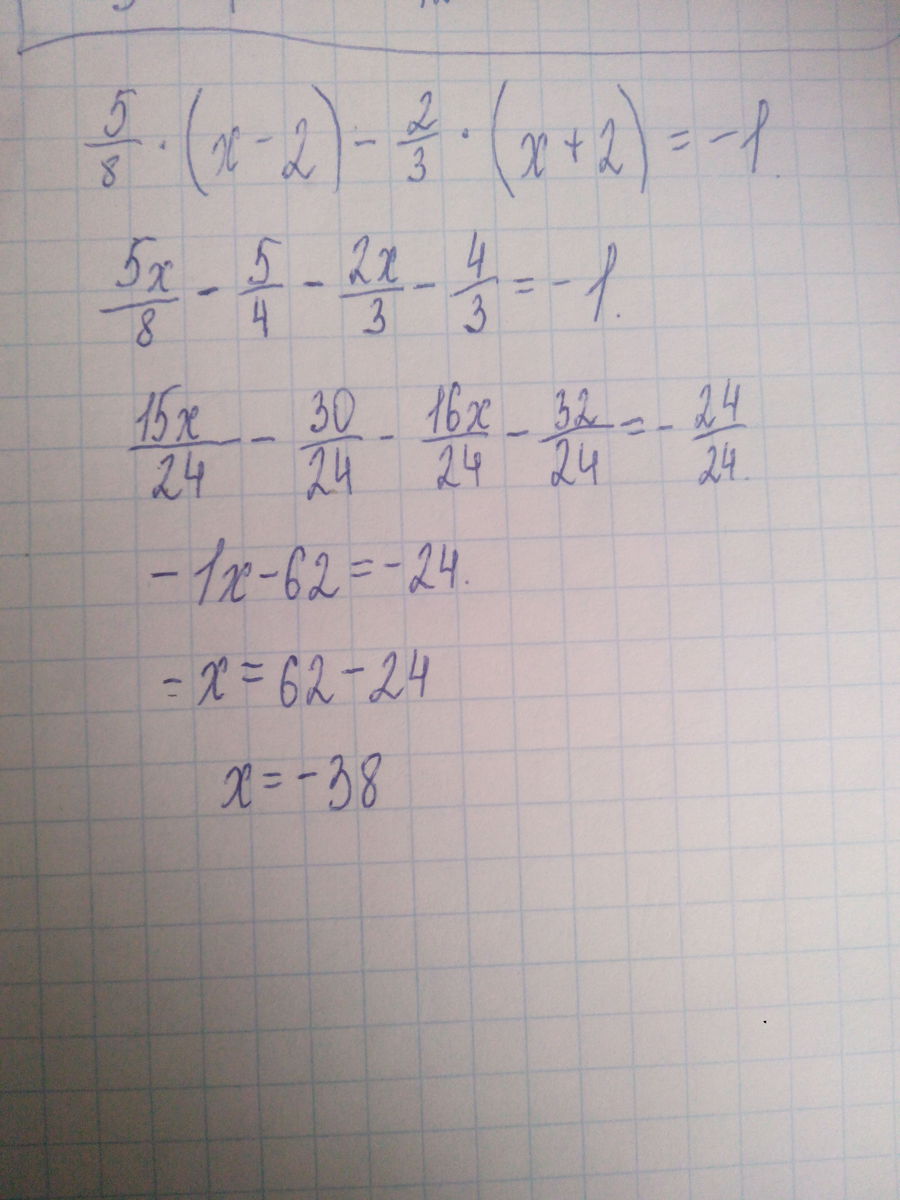 5/8 · (x - 2) - 2/3 · (x + 2) = -1.
5x/8 - 5/4 - 2x/3 - 4/3 = -1.
15x/24 - 30/24 - 16x/24 - 32/24 = - 24/24.
-1x - 62 = -24.
-x = 62 - 24
x = -38